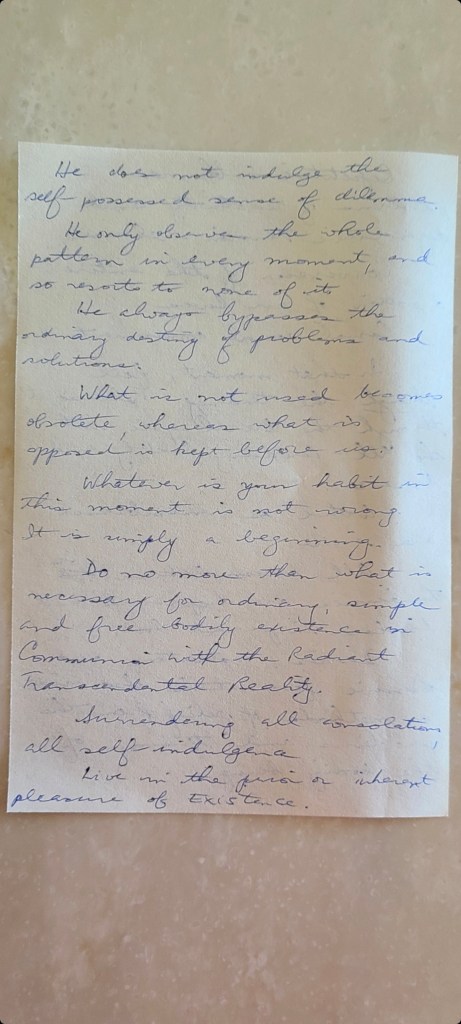 He does not indulge the
self-possessed sense of dilemma.
He only observes the whole
pattern in every moment, and
so resorts to none of it.
He always bypasses the
ordinary destiny of problems and
solutions.
What is not used becomes
obsolete, whereas what is
opposed is kept before us.
Whatever is your habit in
this moment is not wrong.
It is simply a beginning.
Do no more than what is
necessary for ordinary, simple
and free bodily existence in
Communion with the Radiant
Transcendental Reality.
Surrendering all consolations,
all self-indulgence
Live in the prior or inherent
pleasure of Existence.